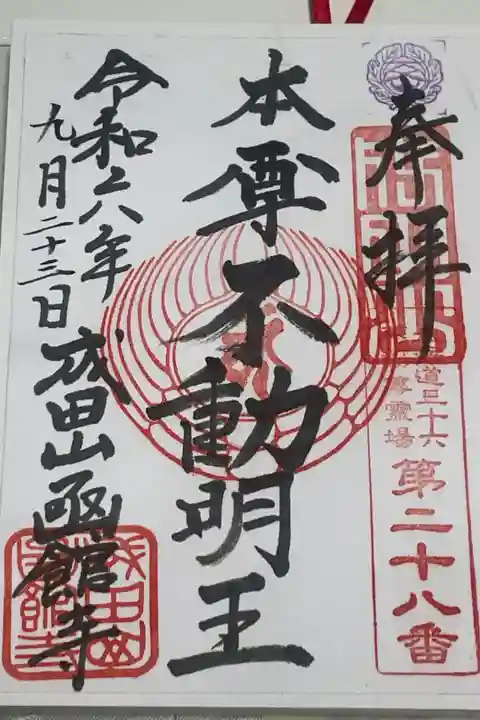 奉拝
道三十六
霊場
第二十八番
本尊不動明王
令和六年
九月二十三日
成田山函館寺